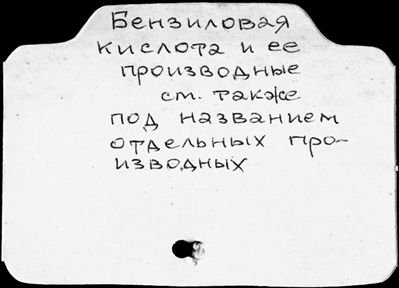 Бензиловая
кислота и ее
производные
см. также
под названием
отдельных про-
изводных